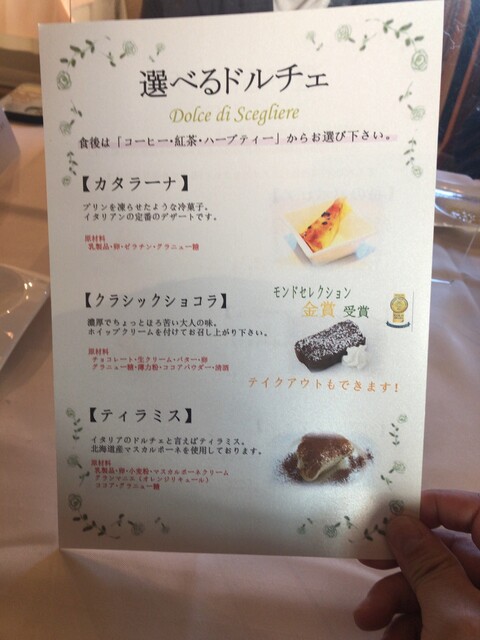 選べるドルチェ
Dolce di Scegliere
食後は「コーヒー・紅茶・ハーブティー」からお選び下さい。
【カタラーナ】
プリンを凍らせたような冷菓子。
イタリアンの定番のデザートです。
原材料
乳製品・卵・ゼラチン・グラニュー糖
【クラシックショコラ】
モンドセレクション
金賞 受賞
濃厚でちょっとほろ苦い大人の味。
ホイップクリームを付けてお召し上がり下さい。
原材料
チョコレート・生クリーム・バター・卵
グラニュー糖・薄力粉・ココアパウダー・洋酒
テイクアウトもできます！
【ティラミス】
イタリアのドルチェと言えばティラミス。
北海道産マスカルポーネを使用しております。
原材料
乳製品・卵・小麦粉・マスカルポーネクリーム
グランマニエ（オレンジリキュール）
ココア・グラニュー糖